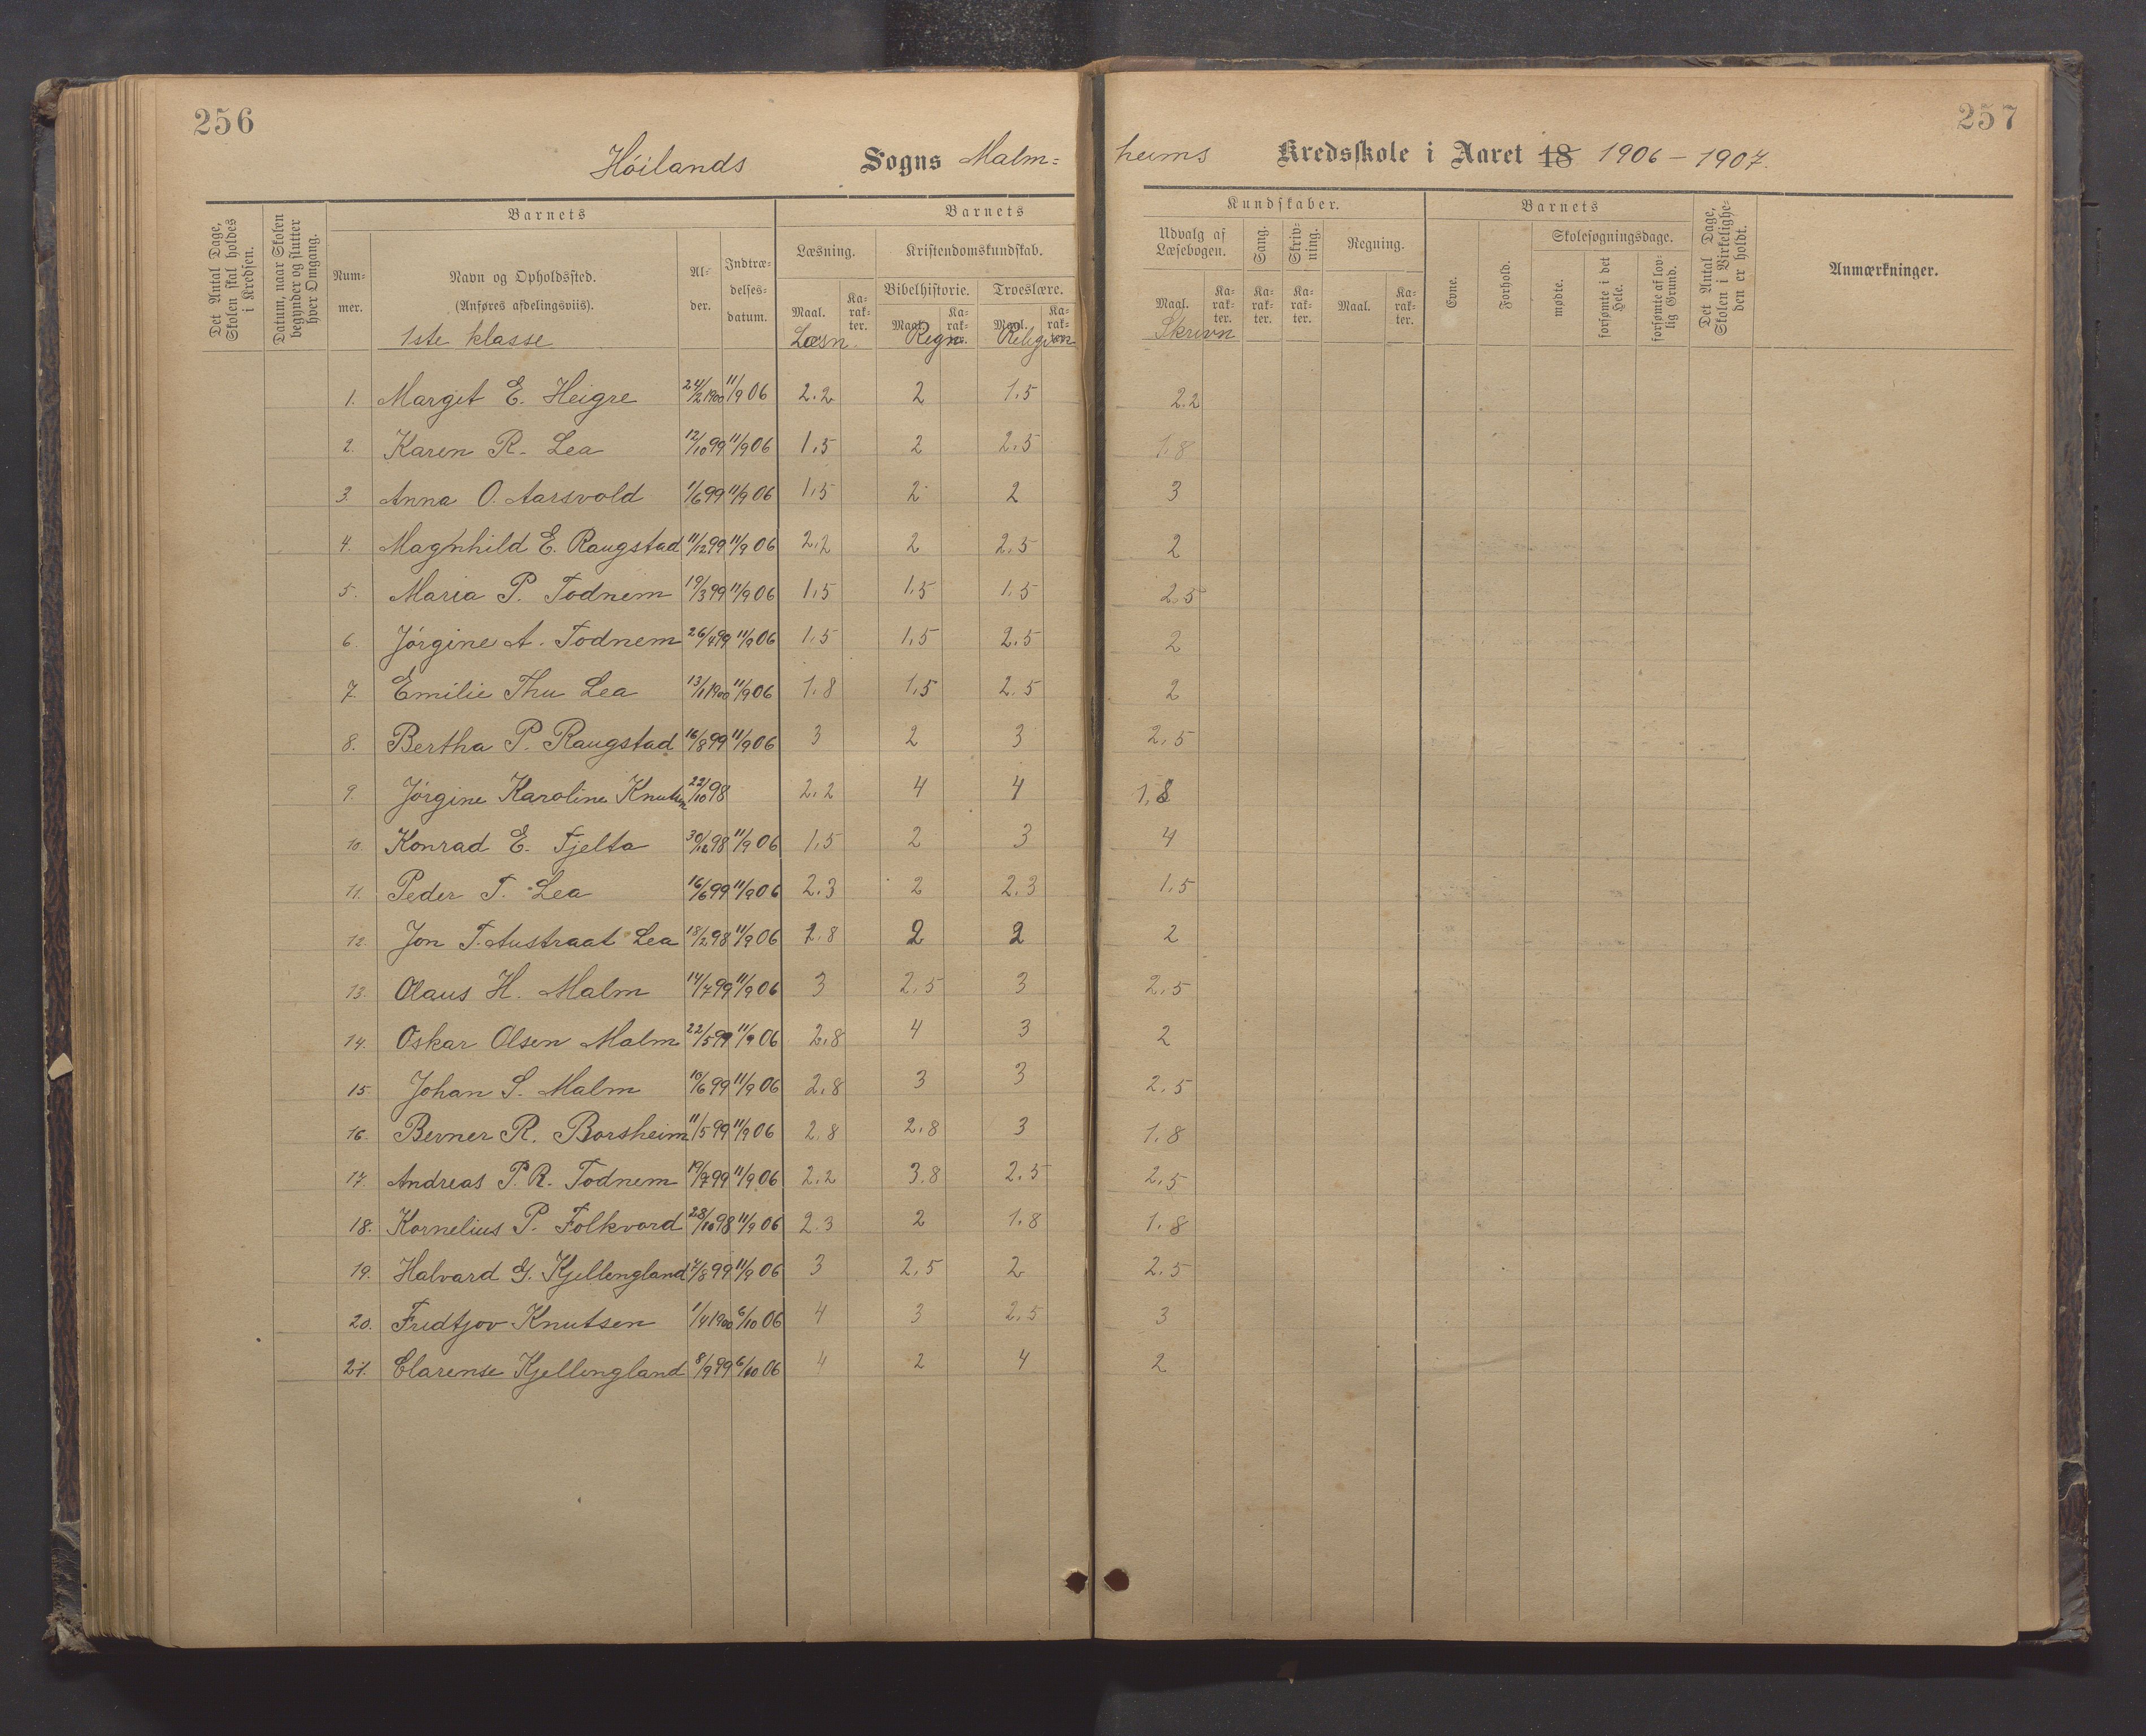 256
257
Höilands Sogns Malm= heims Kredsskole i Aaret 18 1906 – 1907.
Det Antal Dage, Skolen skal holdes i Kredsen.
Datum, naar Skolen begynder og slutter hver Omgang.
Barnets
Nummer.
Navn og Opholdssted.
(Anføres afdelingsviis).
Alder.
Indtrædelsesdatum.
Barnets
Læsning.
Kristendomskundskab.
Bibelhistorie. Troeslære.
Maal. Karakter. Maal. Karakter. Maal. Karakter.
Kundskaber.
Udvalg af Læsebogen.
Sang.
Skrivning.
Regning.
Maal. Karakter. Karakter. Karakter. Maal. Karakter.
Barnets
Evne.
Forhold.
Skolesøgningsdage.
mødte.
forsømte i det Hele.
forsømte af lovlig Grund.
Det Antal Dage, Skolen i Virkeligheden er holdt.
Anmærkninger.
1ste klasse Læsn. Regn. Religion Skrivn
1. Margit E. Heigre 24/2 1900 11/9 06 2.2 2 1.5 2.2
2. Karen R. Lea 12/10 99 11/9 06 1.5 2 2.5 1.8
3. Anna O. Aarsvold 1/6 99 11/9 06 1.5 2 2 3
4. Magnhild E. Raugstad 11/12 99 11/9 06 2.2 2 2.5 2
5. Maria P. Todnem 19/3 99 11/9 06 1.5 1.5 1.5 2.5
6. Jörgine A. Todnem 26/4 99 11/9 06 1.5 1.5 2.5 2
7. Emilie Thu Lea 13/1 1900 11/9 06 1.8 1.5 2.5 2
8. Bertha P. Raugstad 16/8 99 11/9 06 3 2 3 2.5
9. Jörgine Karoline Knutsen 22/10 98 2.2 4 4 1.8
10. Konrad E. Tjelta 30/12 98 11/9 06 1.5 2 3 4
11. Peder T. Lea 16/6 99 11/9 06 2.3 2 2.3 1.5
12. Jon T. Austraat Lea 18/2 98 11/9 06 2.8 2 2 2
13. Olaus H. Malm 14/7 99 11/9 06 3 2.5 3 2.5
14. Oskar Olsen Malm 22/5 99 11/9 06 2.8 4 3 2
15. Johan S. Malm 10/6 99 11/9 06 2.8 3 3 2.5
16. Berner R. Borsheim 11/5 99 11/9 06 2.8 2.8 3 1.8
17. Andreas P. R. Todnem 19/7 99 11/9 06 2.2 3.8 2.5 2.5
18. Kornelius P. Folkvord 28/10 98 11/9 06 2.3 2 1.8 1.8
19. Halvard G. Kjellengland 7/8 99 11/9 06 3 2.5 2 2.5
20. Fridtjov Knutsen 1/4 1900 6/10 06 4 3 2.5 3
21. Clarense Kjellengland 8/9 99 6/10 06 4 2 4 2